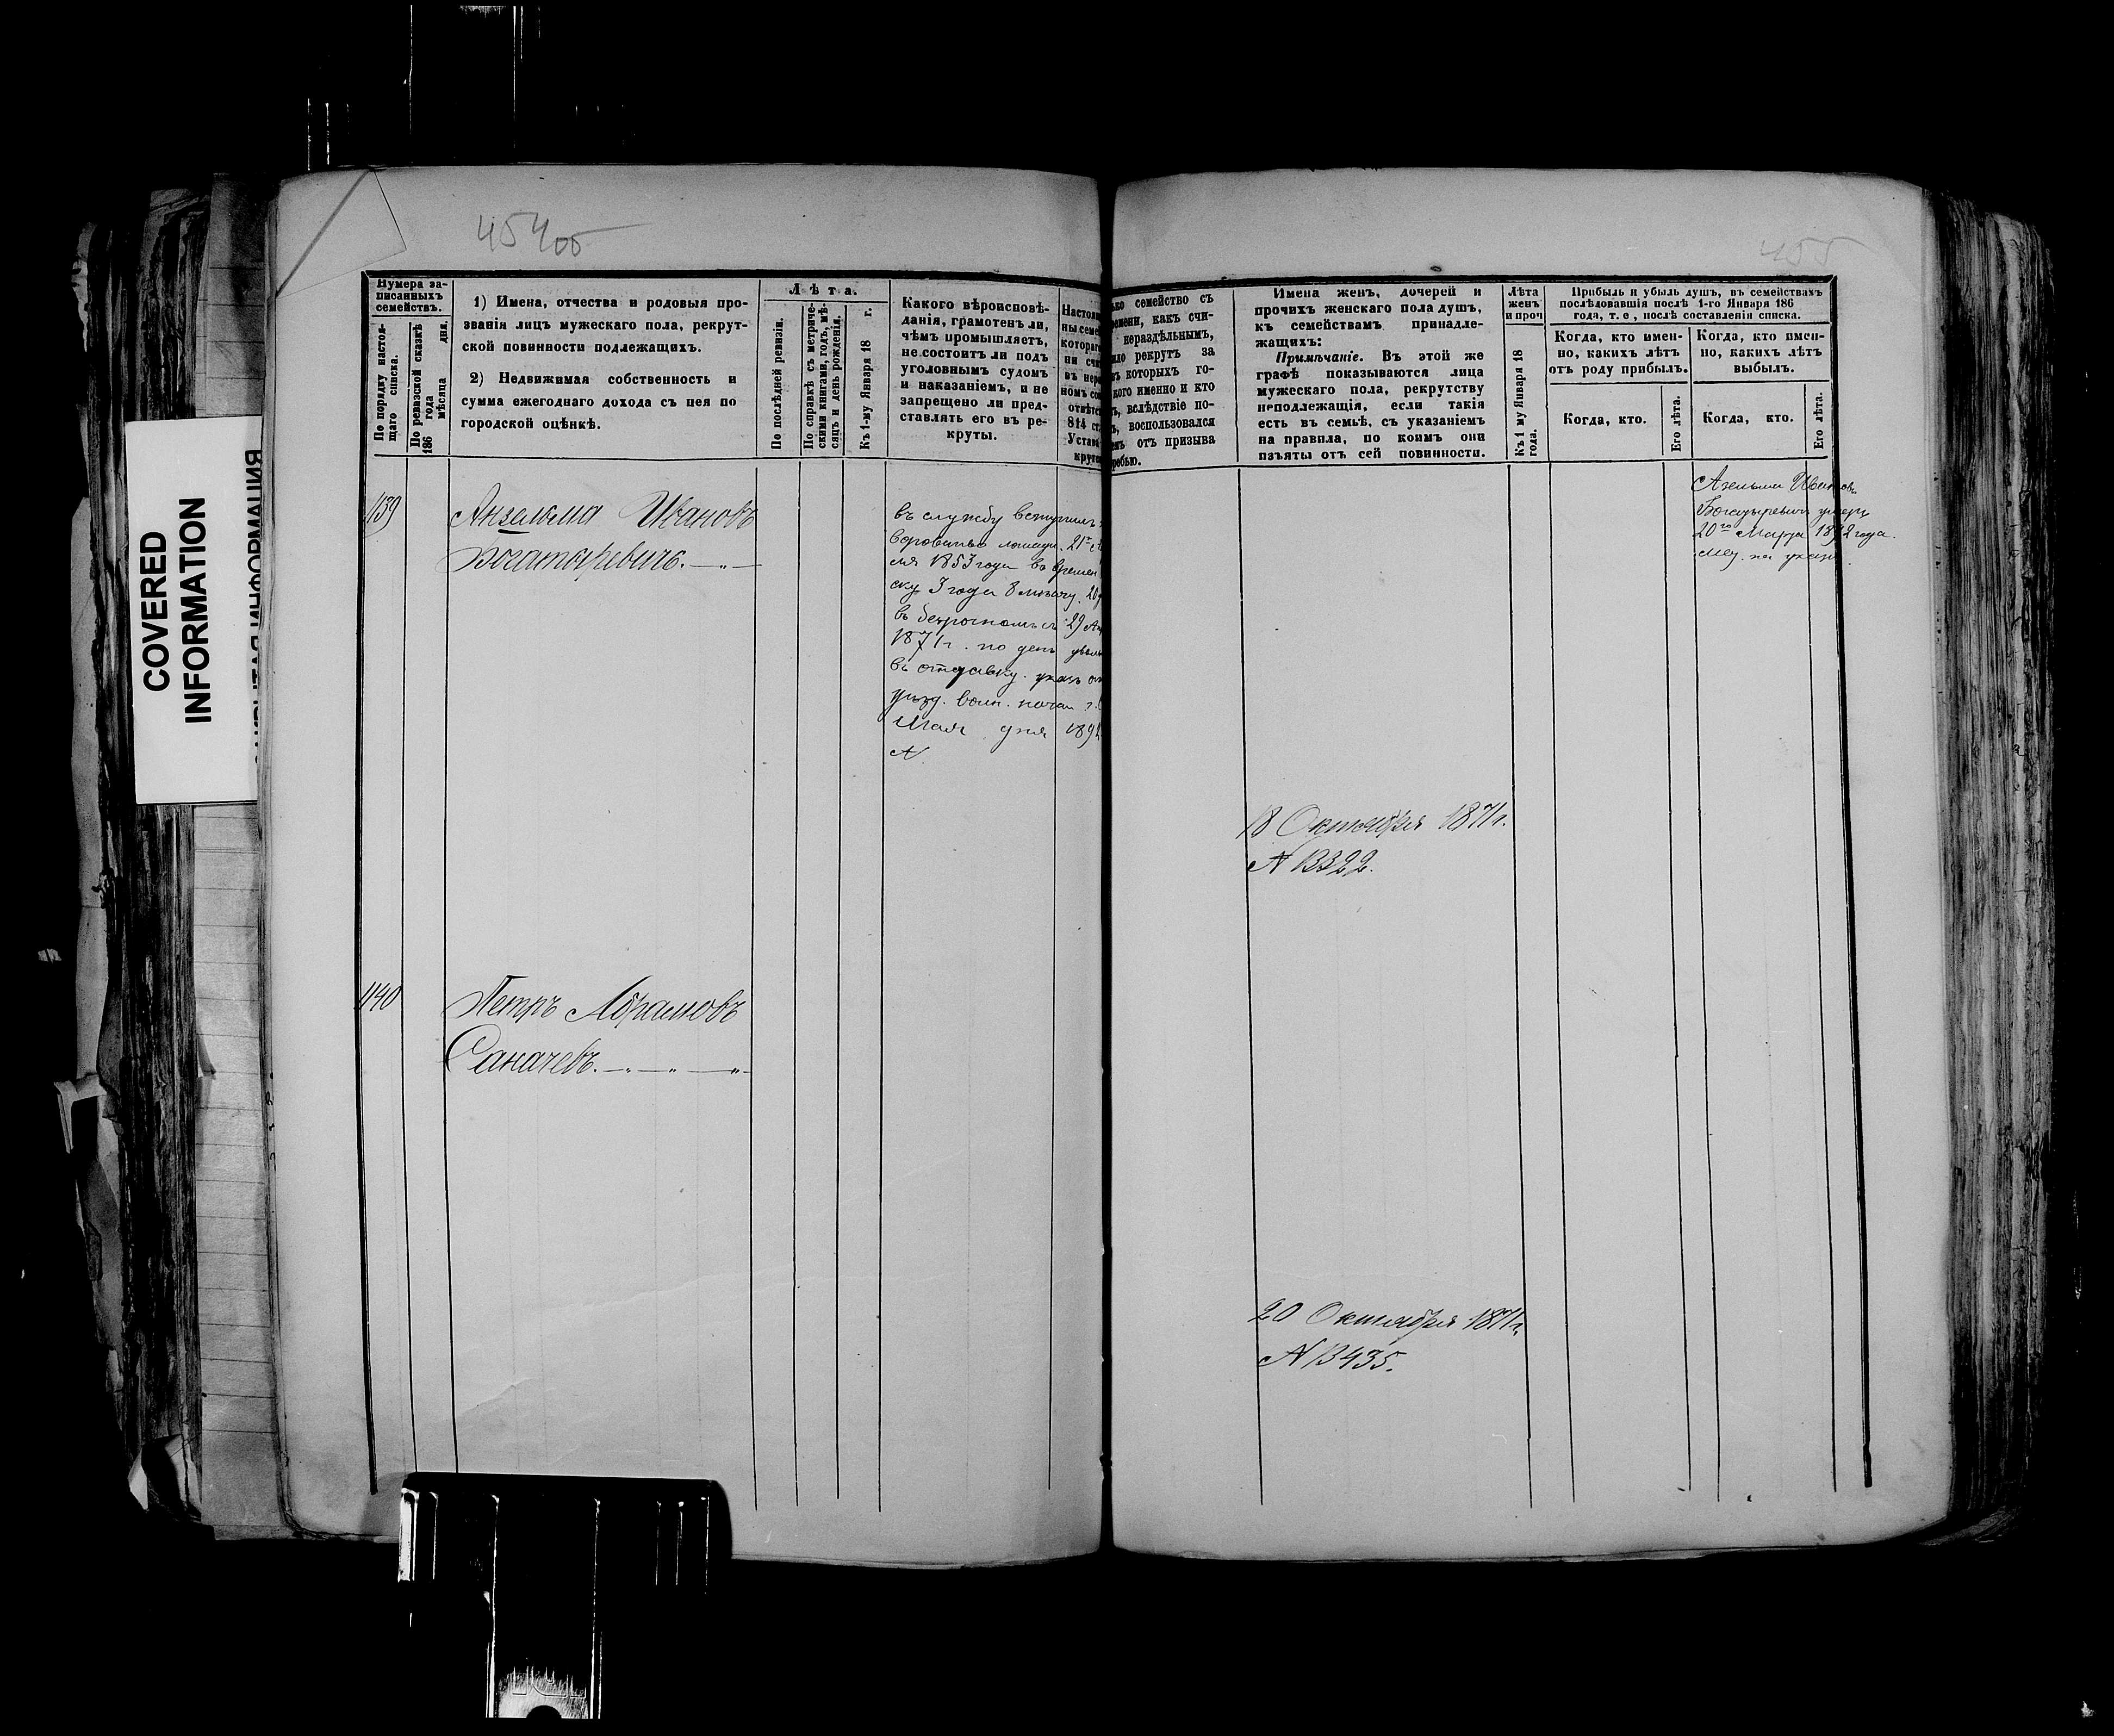 454 об
455
COVERED
INFORMATION
Нумера за-
писанныхъ
семействъ.
По порядку настоя-
щаго списка.
По ревизской сказкѣ
186 года
мѣсяца дня.
1) Имена, отчества и родовыя про-
званія лицъ мужескаго пола, рекрут-
ской повинности подлежащихъ.
2) Недвижимая собственность и
сумма ежегоднаго дохода съ нея по
городской оцѣнкѣ.
Лѣта.
По послѣдней ревизіи.
По справкѣ съ метриче-
скими книгами, годъ, мѣ-
сяцъ и день рожденія.
Къ 1-му Января 18 г.
Какого вѣроисповѣ-
данія, грамотенъ ли,
чѣмъ промышляетъ,
не состоитъ ли подъ
уголовнымъ судомъ
и наказаніемъ, и не
запрещено ли пред-
ставлять его въ ре-
круты.
семейство съ
какъ счи-
нераздѣльнымъ,
рекрутъ за
которыхъ го-
именно и кто
вслѣдствіе по-
воспользовался
отъ призыва
Имена женъ, дочерей и
прочихъ женскаго пола душъ,
къ семействамъ принадле-
жащихъ:
Примѣчаніе. Въ этой же
графѣ показываются лица
мужескаго пола, рекрутству
неподлежащія, если такія
есть въ семьѣ, съ указаніемъ
на правила, по коимъ они
изъяты отъ сей повинности.
Лѣта
женъ
и проч
Къ 1 му Января 18
года.
Прибыль и убыль душъ, въ семействахъ
послѣдовавшія послѣ 1-го Января 186
года, т. е, послѣ составленія списка.
Когда, кто имен-
но, какихъ лѣтъ
отъ роду прибылъ.
Когда, кто имен-
но, какихъ лѣтъ
выбылъ.
Когда, кто.
Его лѣта.
Когда, кто.
Его лѣта.
1139
Анзельма Ивановъ
Богатыревичъ.
въ службу вступилъ
21
1853 года въ
3 года 8
въ 29
1871 г. по день
въ отставку. указъ
Мая дня 189
N
18 Октября 1871 г.
N 13322.
Ивановъ
Богатыревичъ умеръ
20го Марта 1892 года.
1140
Петръ Абрамовъ
Саначевъ.
20 Октября 1871 г.
N 13435.